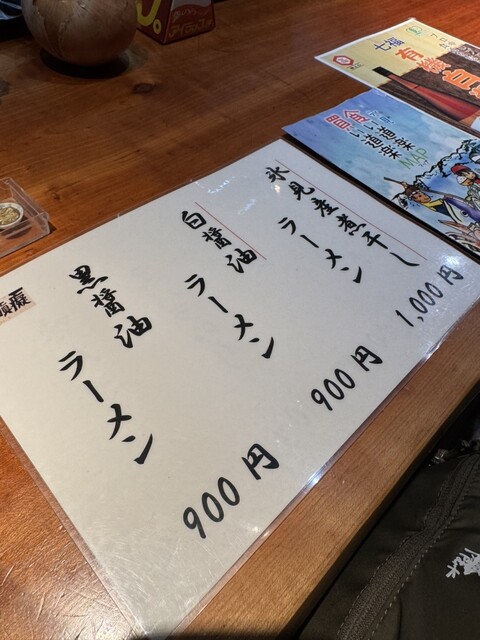 氷見産煮干し
ラーメン
1,000円
白醤油
ラーメン
900円
黒醤油
ラーメン
900円
七福
有機白
食い道楽
買い道楽
MAP